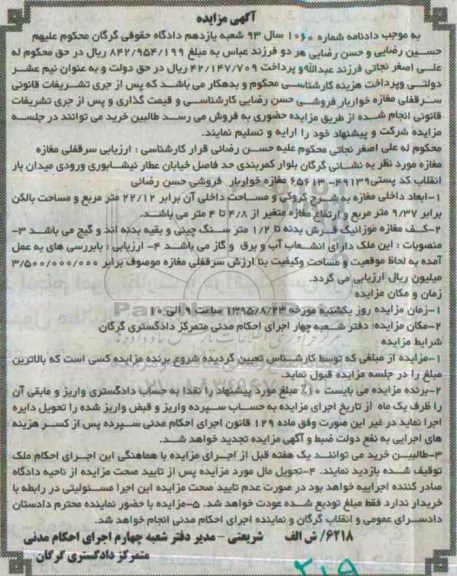 آگهی مزایده
به موجب دادنامه شماره ۱۰۶۰ سال ۹۳ شعبه یازدهم دادگاه حقوقی گرگان محکوم علیهم
حسین رضایی و حسن رضایی هر دو فرزند عباس به مبلغ ۸۴۲/۹۵۴/۱۹۹ ریال در حق محکوم له
علی اصغر نجاتی فرزند عبدالله و پرداخت ۴۲/۱۴۷/۷۰۹ ریال در حق دولت و به عنوان نیم عشر
دولتی وپرداخت هزینه کارشناسی محکوم و بدهکار می باشد که پس از جری تشریفات قانونی
سرقفلی مغازه خواربار فروشی حسن رضایی کارشناسی و قیمت گذاری و پس از جری تشریفات
قانونی انجام شده از طریق مزایده حضوری به فروش می رسد طالبین خرید می توانند در جلسه
مزایده شرکت و پیشنهاد خود را ارایه و تسلیم نمایند.
محکوم له علی اصغر نجاتی محکوم علیه حسن رضائی قرار کارشناسی : ارزیابی سرقفلی مغازه
مغازه مورد نظر به نشانی گرگان بلوار کمربندی حد فاصل خیابان عطار نیشابوری ورودی میدان بار
انقلاب کد پستی ۴۹۱۳۹-۶۵۶۱۳ مغازه خواربار فروشی حسن رضائی
۱-ابعاد داخلی مغازه به شرح کروکی و مساحت داخلی آن برابر ۲۲/۱۲ متر مربع و مساحت بالکن
برابر ۹/۳۷ متر مربع و ارتفاع مغازه متغیر از ۴/۸ تا ۴ متر می باشد.
۲-کف مغازه موزائیک فرش بدنه تا ۱/۲ متر سنگ چینی و بقیه بدنه اند و گیج می باشد ۳-
منصوبات : این ملک دارای انشعاب آب و برق و گاز می باشد ۴- ارزیابی : بابررسی های به عمل
آمده به لحاظ موقعیت و مساحت وکیفیت بنا ارزش سرقفلی مغازه موصوف برابر ۳/۵۰۰/۰۰۰/۰۰۰
میلیون ریال ارزیابی می گردد.
زمان و مکان مزایده
۱-زمان مزایده روز یکشنبه مورخه ۱۳۹۵/۸/۲۳ ساعت ۹ الی ۱۰
۲-مکان مزایده: دفتر شعبه چهار اجرای احکام مدنی متمرکز دادگستری گرگان
شرایط مزایده
۱-مزایده از مبلغی که توسط کارشناس تعیین گردیده شروع برنده مزایده کسی است که بالاترین
مبلغ را در جلسه مزایده قبول نماید.
۲-برنده مزایده می بایست ۱۰٪ مبلغ مورد پیشنهاد را نقدا به حساب دادگستری واریز و مابقی آن
را ظرف یک ماه از تاریخ اجرای مزایده به حساب سپرده واریز و قبض واریز شده را تحویل دایره
اجرا نماید در غیر این صورت وفق ماده ۱۲۹ قانون اجرای احکام مدنی سپرده پس از کسر هزینه
های اجرایی به نفع دولت ضبط و آگهی مزایده تجدید خواهد شد.
۳-طالبین خرید می توانند یک هفته قبل از اجرای مزایده با هماهنگی این اجرای احکام ملک
توقیف شده بازدید نمایند. ۴-تحویل مال مورد مزایده پس از تایید صحت مزایده از ناحیه دادگاه
صادر کننده اجراییه خواهد بود در صورت عدم تایید صحت مزایده این اجرا مسئولیتی در رابطه با
خریدار ندارد فقط مبلغ تودیع شده عودت خواهد شد. ۵-مزایده با حضور نماینده محترم دادستان
دادسرای عمومی و انقلاب گرگان و نماینده اجرای احکام مدنی انجام خواهد شد.
۶۲۱۸/ ش الف شریعتی - مدیر دفتر شعبه چهارم اجرای احکام مدنی
متمرکز دادگستری گرگان
۲۱۹